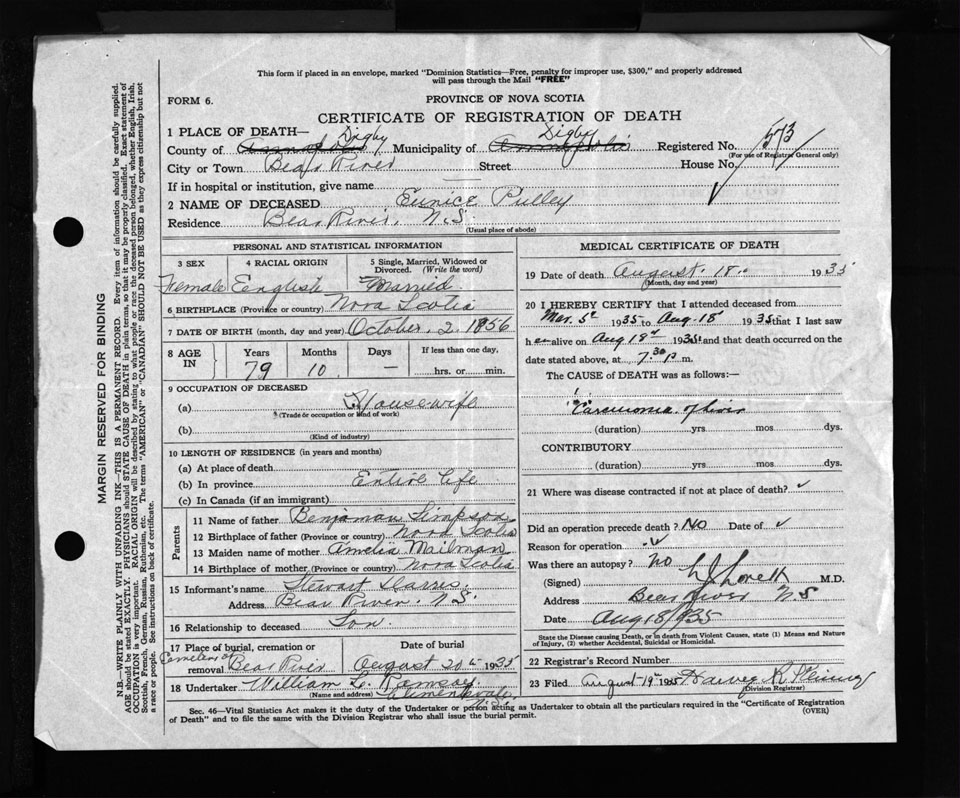 This form if placed in an envelope, marked "Dominion Statistics—Free, penalty for improper use, $300," and properly addressed
will pass through the Mail "FREE"
FORM 6.
PROVINCE OF NOVA SCOTIA
CERTIFICATE OF REGISTRATION OF DEATH
1 PLACE OF DEATH— Digby Digby 573
County of Annapolis Municipality of Annapolis Registered No.
(For use of Registrar General only)
City or Town Bear River Street House No.
If in hospital or institution, give name
2 NAME OF DECEASED Eunice Pulley
Residence Bear River, N.S.
(Usual place of abode)
PERSONAL AND STATISTICAL INFORMATION
3 SEX 4 RACIAL ORIGIN 5 Single, Married, Widowed or Divorced. (Write the word)
Female English Married
6 BIRTHPLACE (Province or country) Nova Scotia
7 DATE OF BIRTH (month, day and year) October 2 1856
8 AGE IN Years Months Days If less than one day,
79 10 — hrs. or min.
9 OCCUPATION OF DECEASED
(a) Housewife
(Trade or occupation or kind of work)
(b)
(Kind of industry)
10 LENGTH OF RESIDENCE (in years and months)
(a) At place of death
(b) In province Entire life
(c) In Canada (if an immigrant)
Parents
11 Name of father Benjaman Simpson
12 Birthplace of father (Province or country) Nova Scotia
13 Maiden name of mother Amelia Mailman
14 Birthplace of mother (Province or country) Nova Scotia
15 Informant's name Stewart Harris
Address Bear River, N.S.
16 Relationship to deceased Son
17 Place of burial, cremation or removal Date of burial
Cemetery Bear River August 20th 1935
18 Undertaker William L. Ramsay
(Name and address) N.S.
MEDICAL CERTIFICATE OF DEATH
19 Date of death August 18 1935
(Month, day and year)
20 I HEREBY CERTIFY that I attended deceased from
Mar. 5th 1935 to Aug. 18 1935 that I last saw
her alive on Aug 18th 1935 and that death occurred on the
date stated above, at 7.30 p m.
The CAUSE of DEATH was as follows:—
Carcinoma of liver
(duration) yrs mos dys.
CONTRIBUTORY
(duration) yrs mos dys.
21 Where was disease contracted if not at place of death?
Did an operation precede death? No Date of
Reason for operation
Was there an autopsy? No
(Signed) L J Lovett M.D.
Address Bear River N.S
Date Aug 18/935
State the Disease causing Death, or in death from Violent Causes, state (1) Means and Nature
of Injury, (2) whether Accidental, Suicidal or Homicidal.
22 Registrar's Record Number
23 Filed August 19th 1935 Harvey K
(Division Registrar)
Sec. 46—Vital Statistics Act makes it the duty of the Undertaker or person acting as Undertaker to obtain all the particulars required in the "Certificate of Registration
of Death" and to file the same with the Division Registrar who shall issue the burial permit.
(OVER)
MARGIN RESERVED FOR BINDING
N.B.—WRITE PLAINLY WITH UNFADING INK—THIS IS A PERMANENT RECORD. Every item of information should be carefully supplied.
AGE should be stated EXACTLY. PHYSICIANS should STATE CAUSE OF DEATH in plain terms, so that it may be properly classified. Exact statement of
OCCUPATION is very important. RACIAL ORIGIN will be described by stating to what people or race the deceased person belonged, whether English, Irish,
Scottish, French, German, Russian, Ruthenian, etc. The terms "AMERICAN" or "CANADIAN" SHOULD NOT BE USED as they express citizenship but not
a race or people. See instructions on back of certificate.